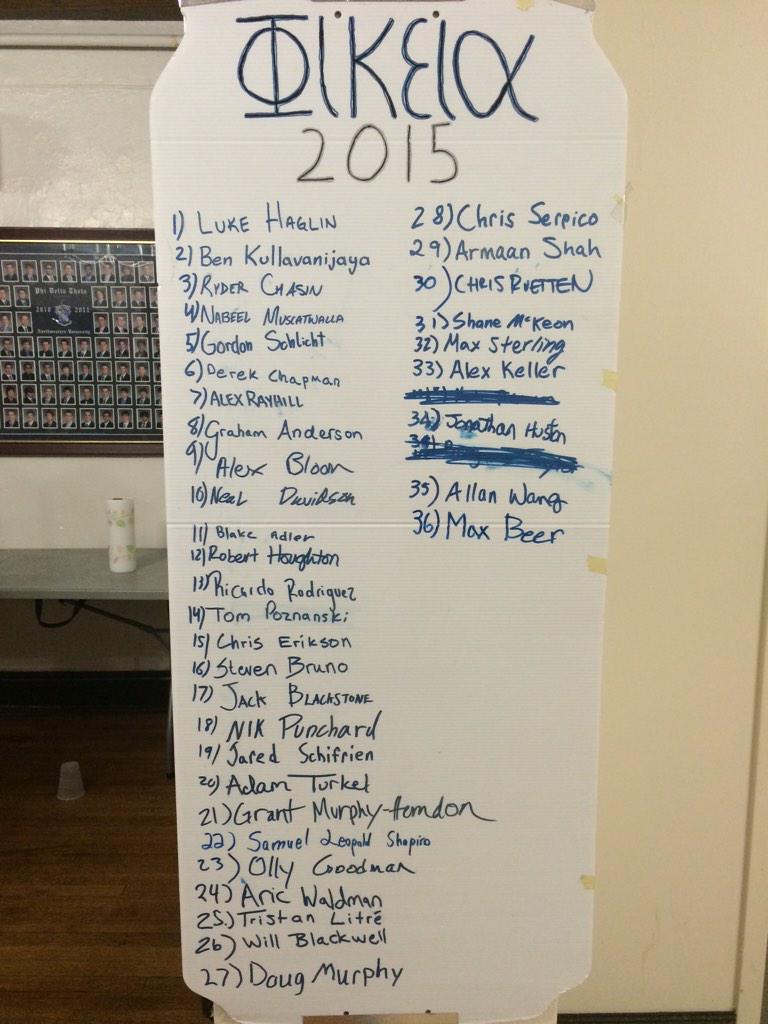 ΦΙΚΕΙΑ
2015
1) LUKE HAGLIN
2) Ben Kullavanijaya
3) RYDER CHASIN
4) NABEEL MUSCATWALLA
5) Gordon Schlicht
6) Derek Chapman
7) ALEX RAYHILL
8) Graham Anderson
9) Alex Bloom
10) Neal Davidson
11) Blake Adler
12) Robert Houghton
13) Ricardo Rodriguez
14) Tom Poznanski
15) Chris Erikson
16) Steven Bruno
17) JACK BLACKSTONE
18) NIK Punchard
19) Jared Schifrien
20) Adam Turkel
21) Grant Murphy-Herndon
22) Samuel Leopold Shapiro
23) Olly Goodman
24) Aric Waldman
25.) Tristan Litré
26) Will Blackwell
27) Doug Murphy
28) Chris Serpico
29) Armaan Shah
30) CHRIS RUETTEN
31) Shane McKeon
32) Max Sterling
33) Alex Keller
34) Jonathan Huston
35) Allan Wang
36) Max Beer
Phi Delta Theta
2010 2011
Northwestern University